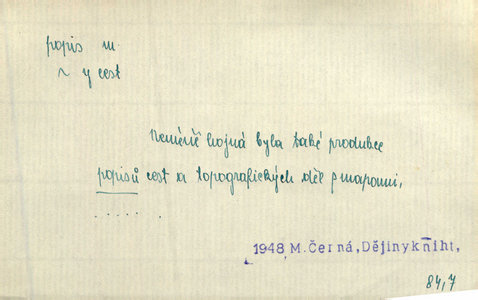 popis m.
~ y cest
Neméně hojná byla také produkce
popisů cest a topografických děl s mapami,
. . . . . .
1948 M. Černá, Dějiny kniht,
84,7